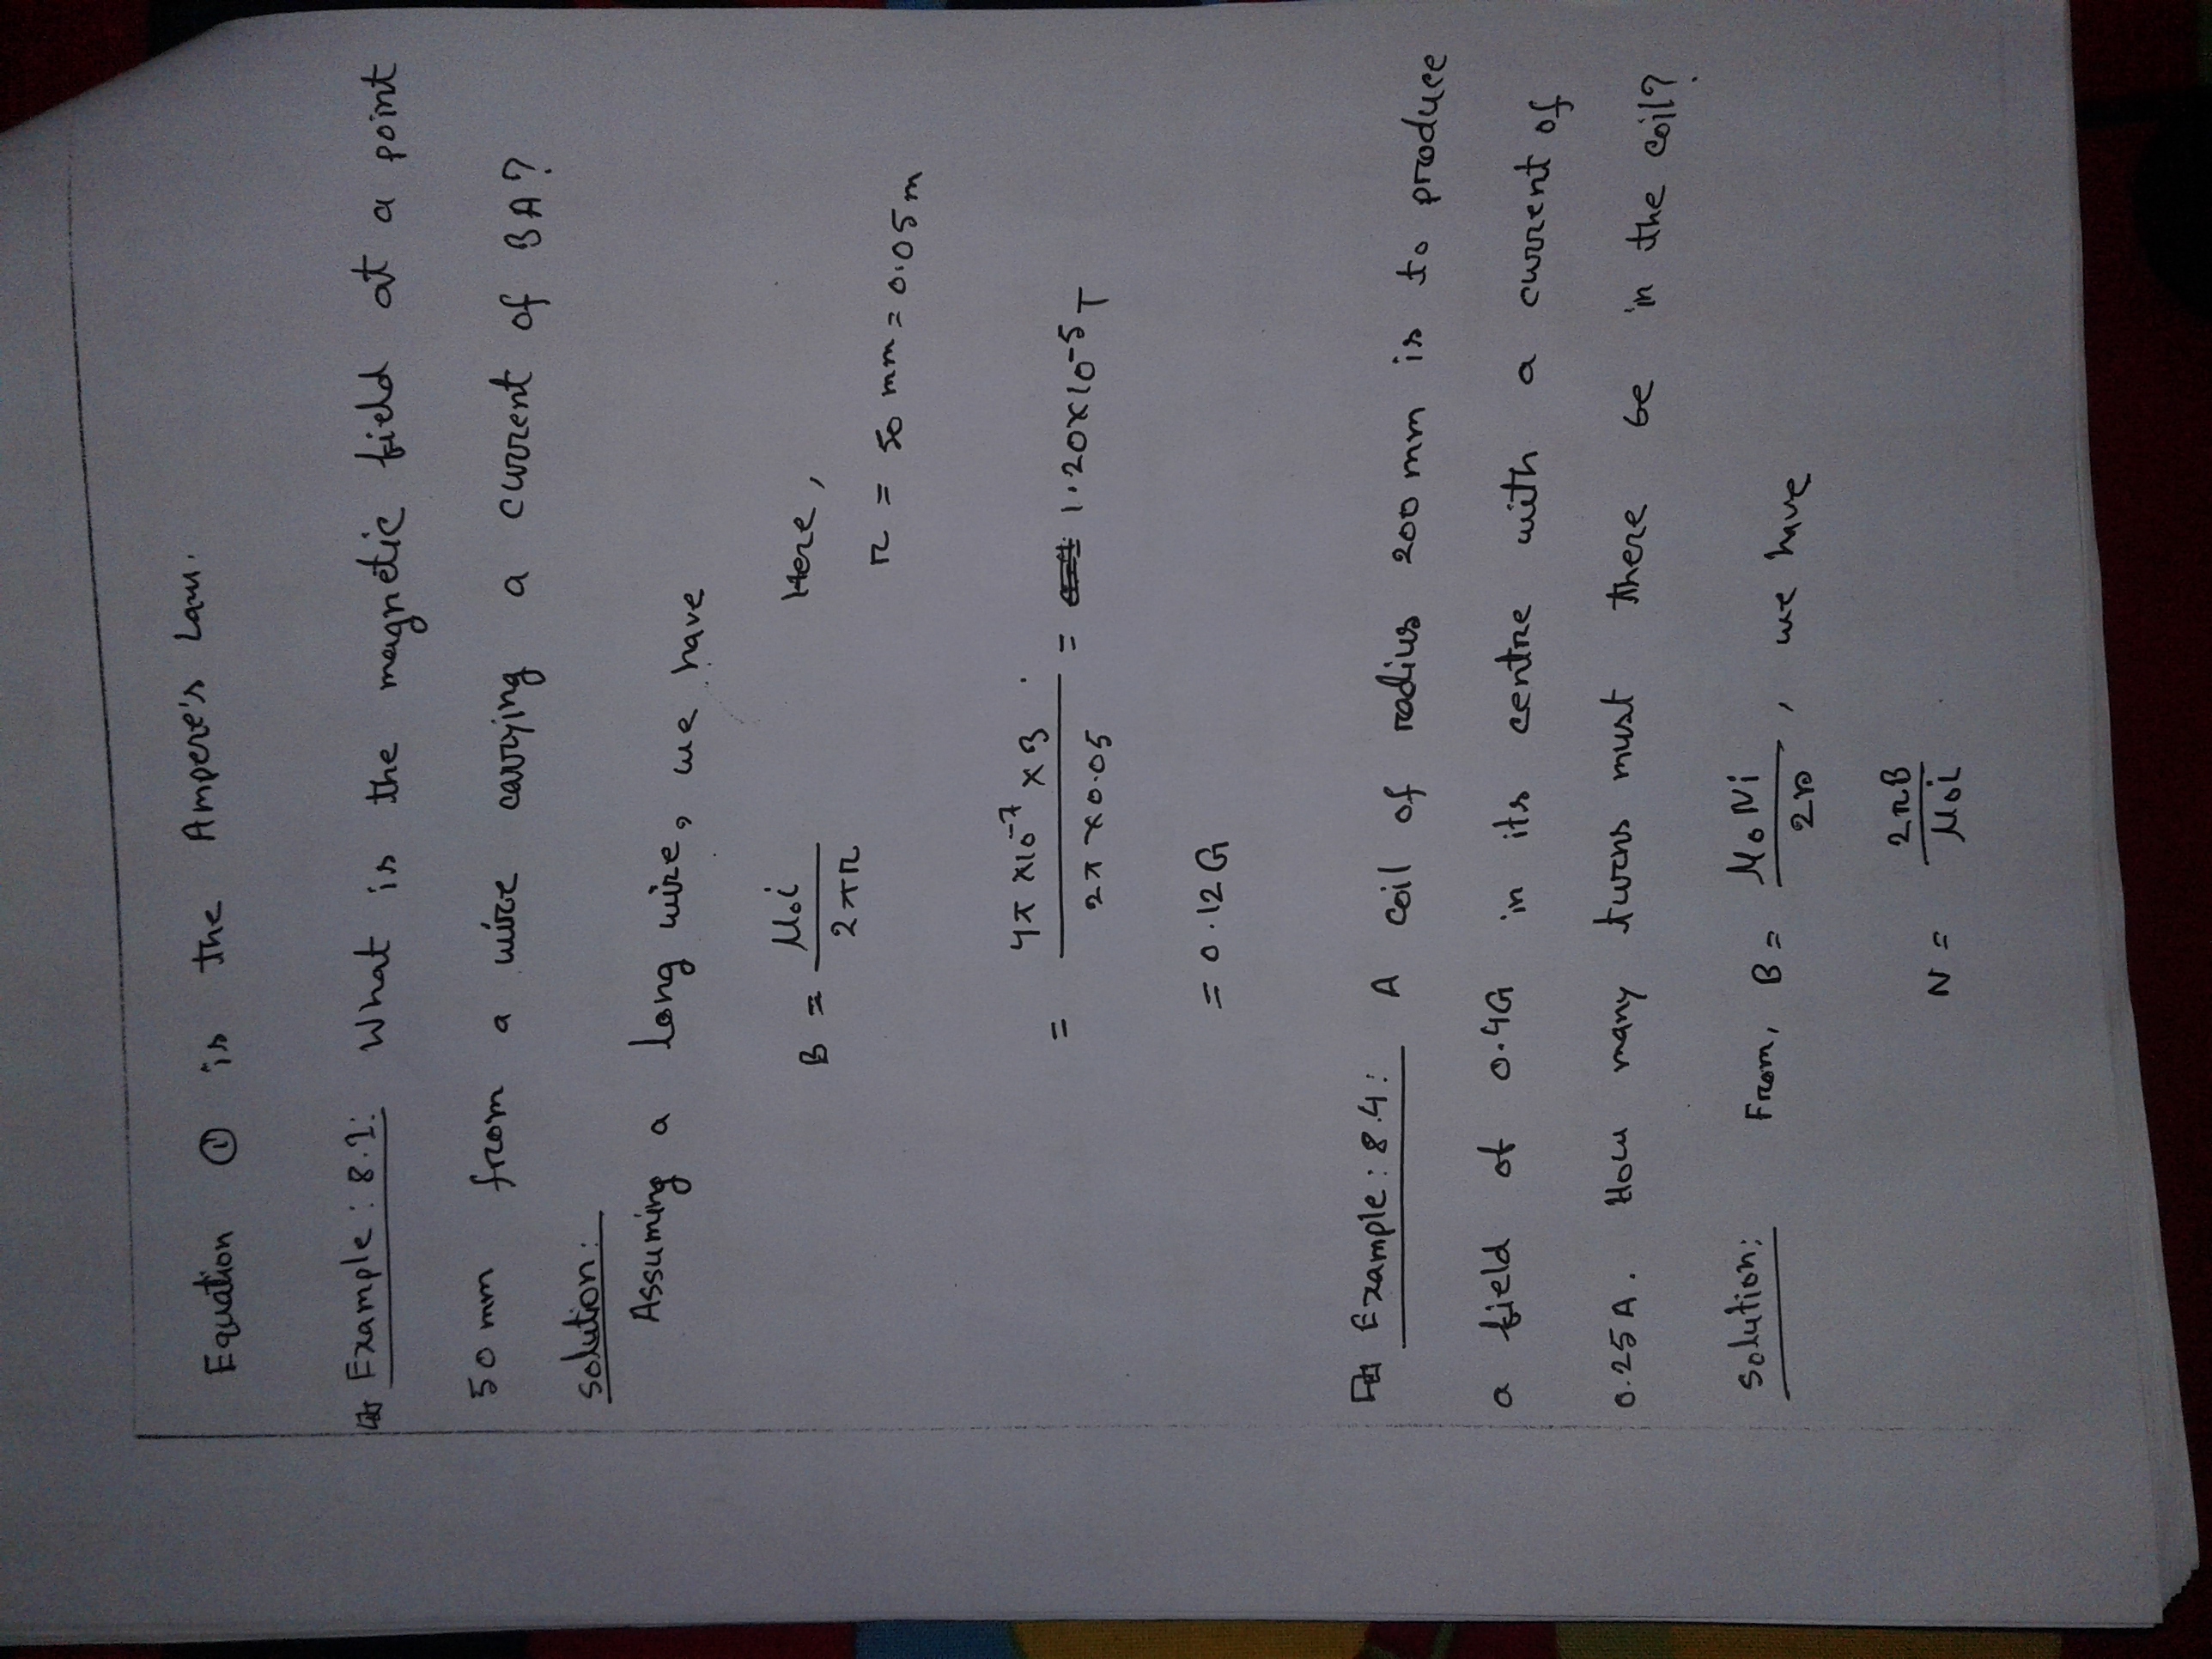 Equation ① is the Ampere's Law.
Example: 8.1: What is the magnetic field at a point
50 mm from a wire carrying a current of 3A?
Solution:
Assuming a long wire, we have
B = μ₀i / 2πr
Here,
r = 50 mm = 0.05 m
= 4π × 10⁻⁷ × 3 / 2π × 0.05 = 1.20 × 10⁻⁵ T
= 0.12 G
Example: 8.4: A coil of radius 200 mm is to produce
a field of 0.4G in its centre with a current of
0.25 A. How many turns must there be in the coil?
Solution: From, B = μ₀Ni / 2r, we have
N = 2rB / μ₀i